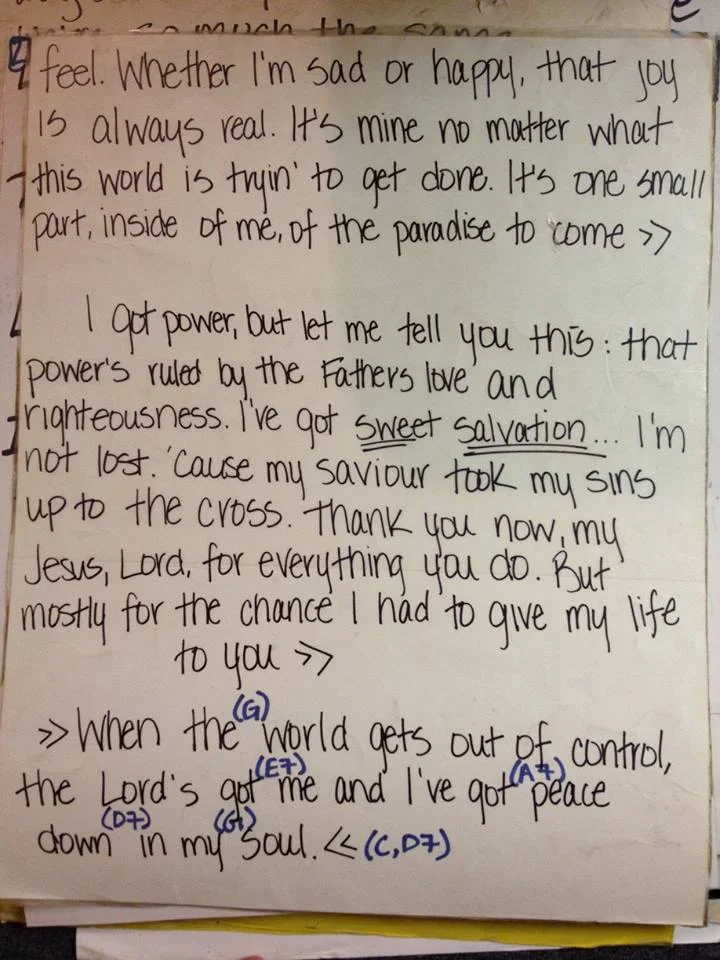 so much the same
feel. Whether I'm sad or happy, that joy
is always real. It's mine no matter what
this world is tryin' to get done. It's one small
part, inside of me, of the paradise to come >>
I got power, but let me tell you this: that
power's ruled by the Fathers love and
righteousness. I've got sweet salvation... I'm
not lost. 'Cause my saviour took my sins
up to the cross. Thank you now, my
Jesus, Lord, for everything you do. But
mostly for the chance I had to give my life
to you >>
(G)
>> When the world gets out of control,
(E7) (A7)
the Lord's got me and I've got peace
(D7) (G)
down in my soul. << (C, D7)